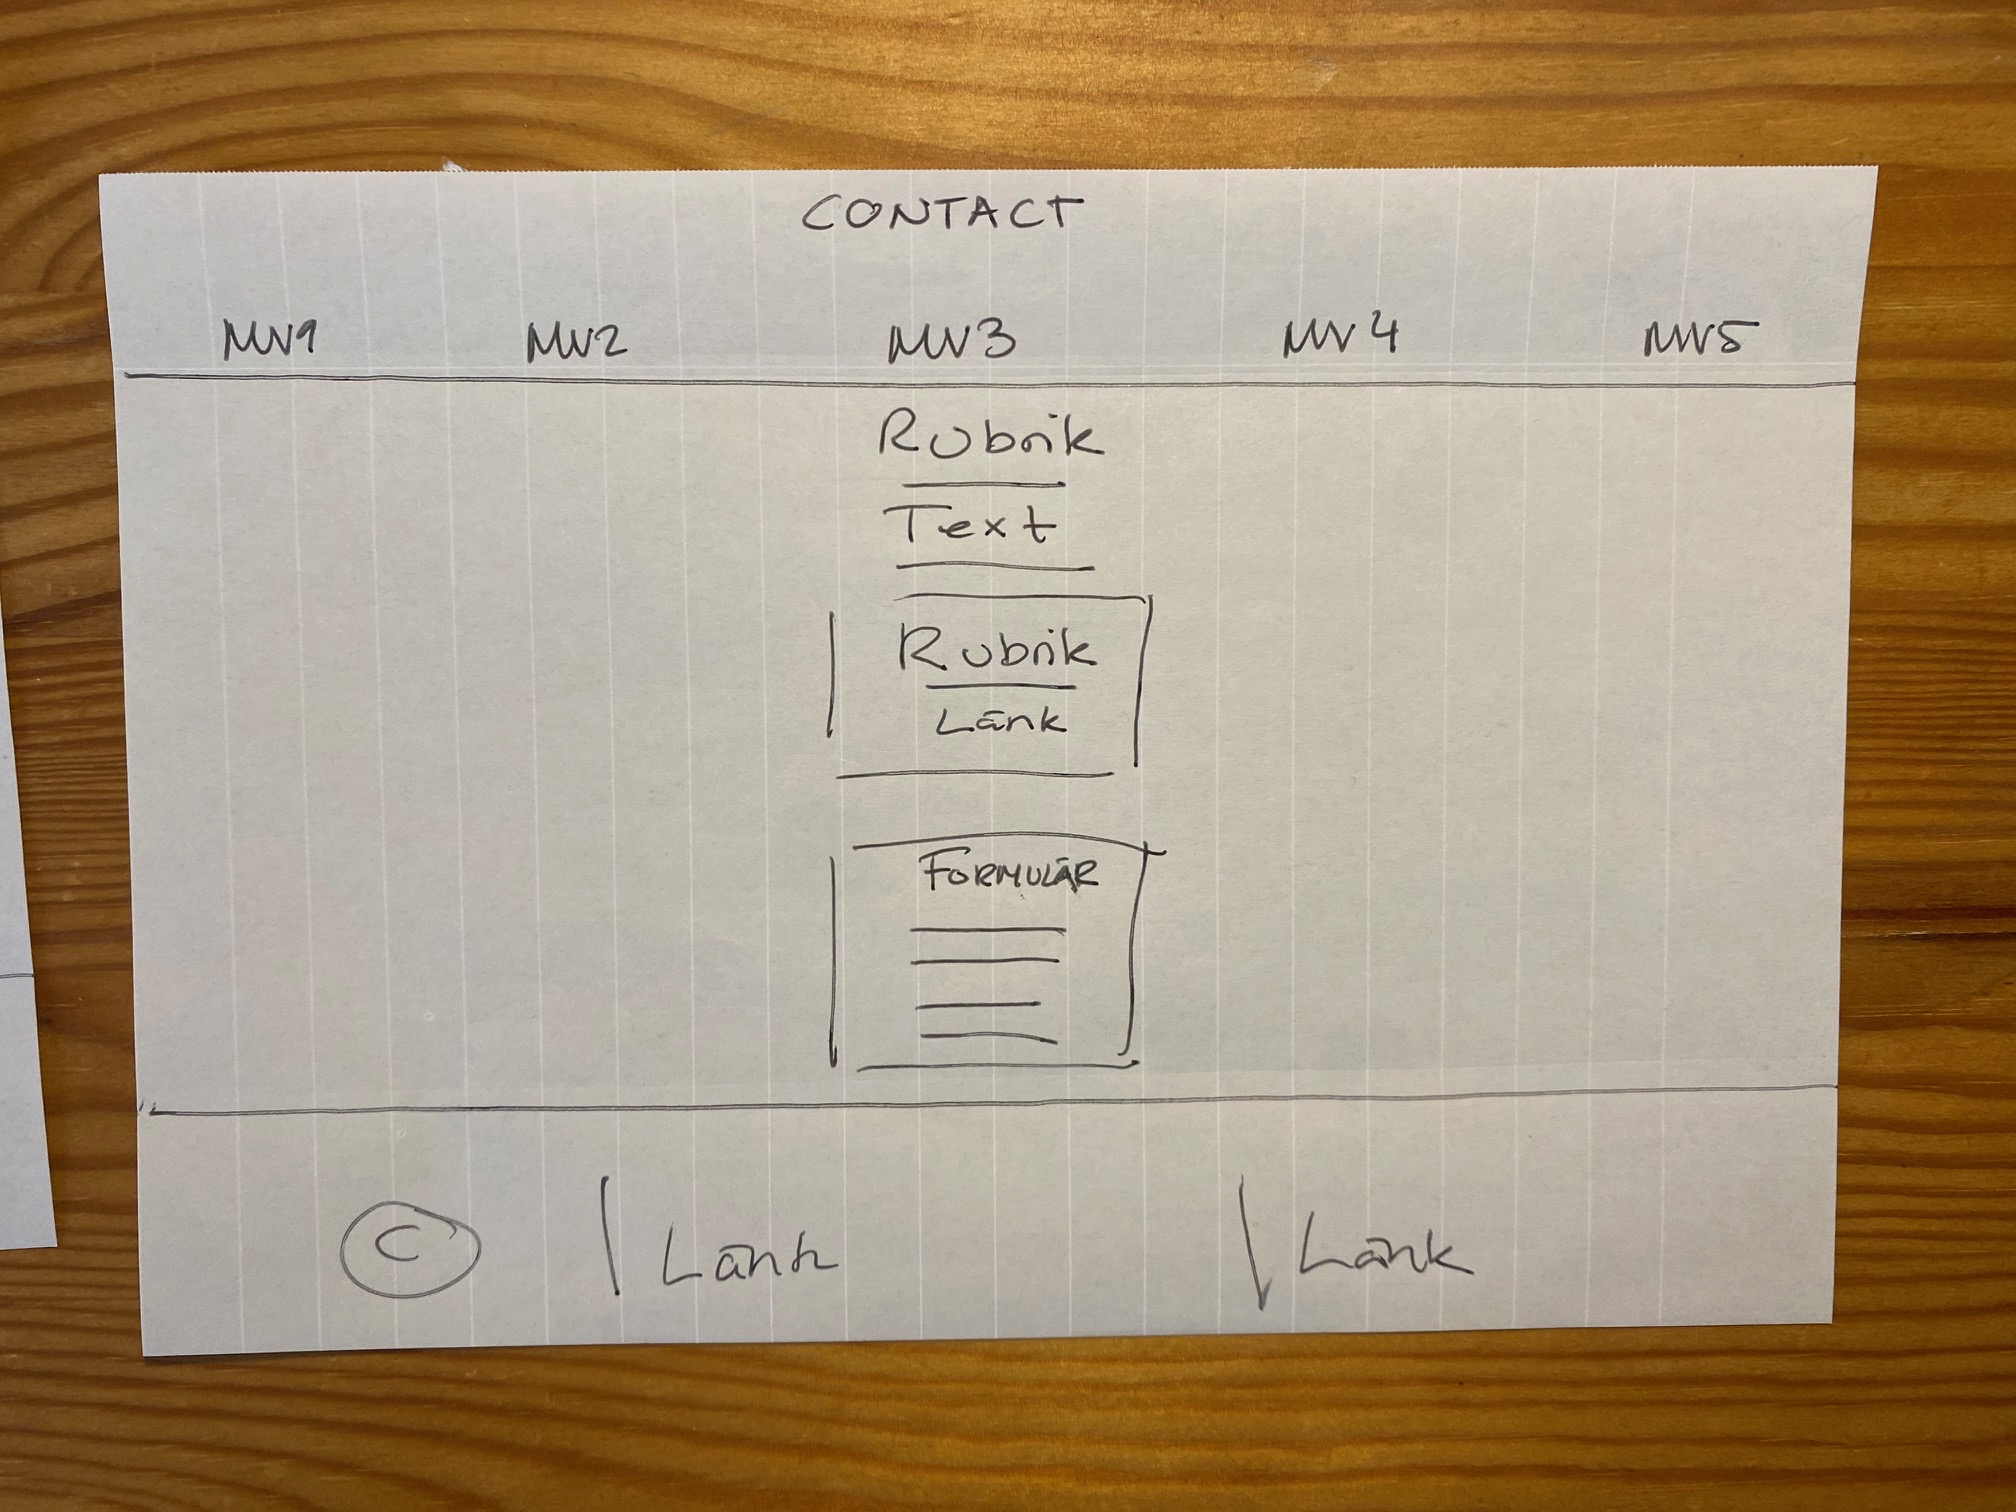 CONTACT
MV1 MV2 MV3 MV4 MV5
Rubrik
Text
Rubrik
Länk
FORMULÄR
C | Länk | Länk